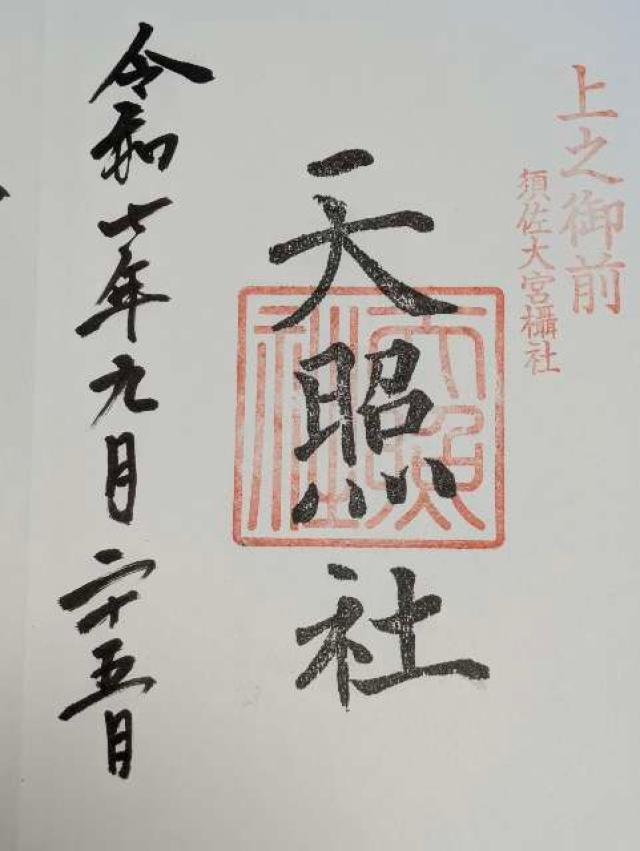 上之御前
須佐大宮攝社
天照社
天照社
令和七年九月二十五日